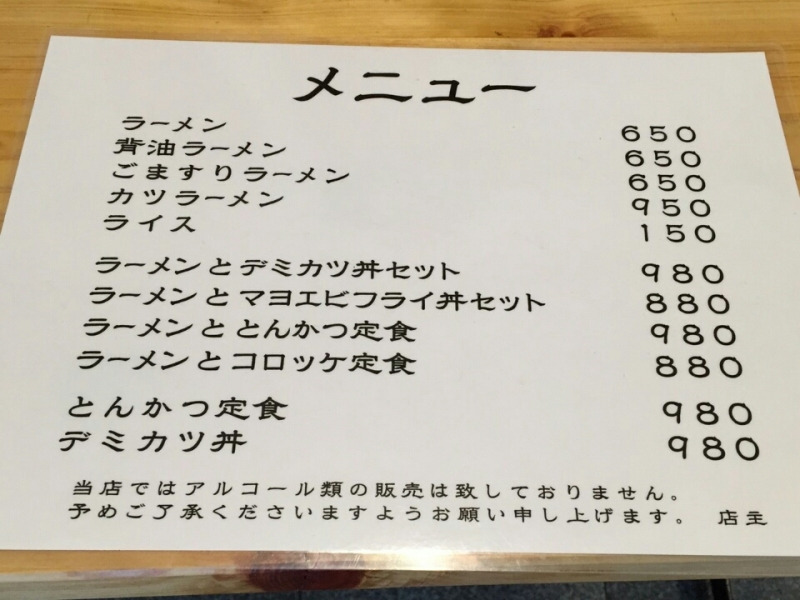 メニュー
ラーメン 650
背油ラーメン 650
ごますりラーメン 650
カツラーメン 950
ライス 150
ラーメンとデミカツ丼セット 980
ラーメンとマヨエビフライ丼セット 880
ラーメンととんかつ定食 980
ラーメンとコロッケ定食 880
とんかつ定食 980
デミカツ丼 980
当店ではアルコール類の販売は致しておりません。
予めご了承くださいますようお願い申し上げます。 店主